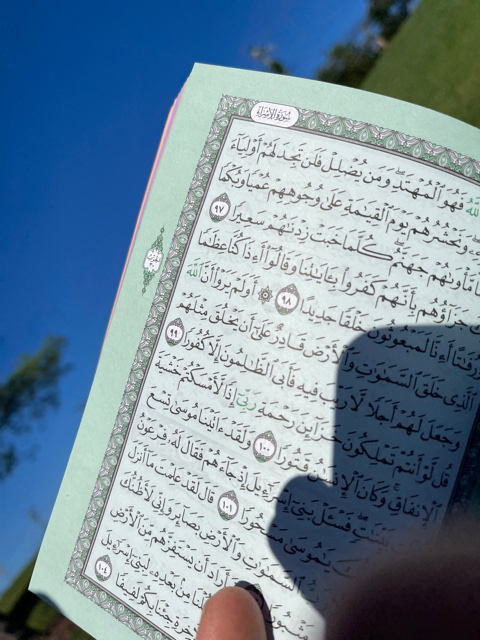 سُورَةُ الإِسْرَاءِ
ٱللَّهُ فَهُوَ ٱلْمُهْتَدِ وَمَن يُضْلِلْ فَلَن تَجِدَ لَهُمْ أَوْلِيَآءَ
وَنَحْشُرُهُمْ يَوْمَ ٱلْقِيَٰمَةِ عَلَىٰ وُجُوهِهِمْ عُمْيًا وَبُكْمًا
مَّأْوَىٰهُمْ جَهَنَّمُ كُلَّمَا خَبَتْ زِدْنَٰهُمْ سَعِيرًا ٩٧
جَزَآؤُهُم بِأَنَّهُمْ كَفَرُوا۟ بِـَٔايَٰتِنَا وَقَالُوٓا۟ أَءِذَا كُنَّا عِظَٰمًا
وَرُفَٰتًا أَءِنَّا لَمَبْعُوثُونَ خَلْقًا جَدِيدًا ٩٨ ۞ أَوَلَمْ يَرَوْا۟ أَنَّ ٱللَّهَ
ٱلَّذِى خَلَقَ ٱلسَّمَٰوَٰتِ وَٱلْأَرْضَ قَادِرٌ عَلَىٰٓ أَن يَخْلُقَ مِثْلَهُمْ
وَجَعَلَ لَهُمْ أَجَلًا لَّا رَيْبَ فِيهِ فَأَبَى ٱلظَّٰلِمُونَ إِلَّا كُفُورًا ٩٩
قُل لَّوْ أَنتُمْ تَمْلِكُونَ خَزَآئِنَ رَحْمَةِ رَبِّىٓ إِذًا لَّأَمْسَكْتُمْ خَشْيَةَ
ٱلْإِنفَاقِ وَكَانَ ٱلْإِنسَٰنُ قَتُورًا ١٠٠ وَلَقَدْ ءَاتَيْنَا مُوسَىٰ تِسْعَ
بَيِّنَٰتٍ فَسْـَٔلْ بَنِىٓ إِسْرَٰٓءِيلَ إِذْ جَآءَهُمْ فَقَالَ لَهُۥ فِرْعَوْنُ
يَٰمُوسَىٰ مَسْحُورًا ١٠١ قَالَ لَقَدْ عَلِمْتَ مَآ أَنزَلَ
ٱلسَّمَٰوَٰتِ وَٱلْأَرْضِ بَصَآئِرَ وَإِنِّى لَأَظُنُّكَ
مَثْبُورًا فَأَرَادَ أَن يَسْتَفِزَّهُم مِّنَ ٱلْأَرْضِ
مِنۢ بَعْدِهِۦ لِبَنِىٓ إِسْرَٰٓءِيلَ
جِئْنَا بِكُمْ لَفِيفًا ١٠٤